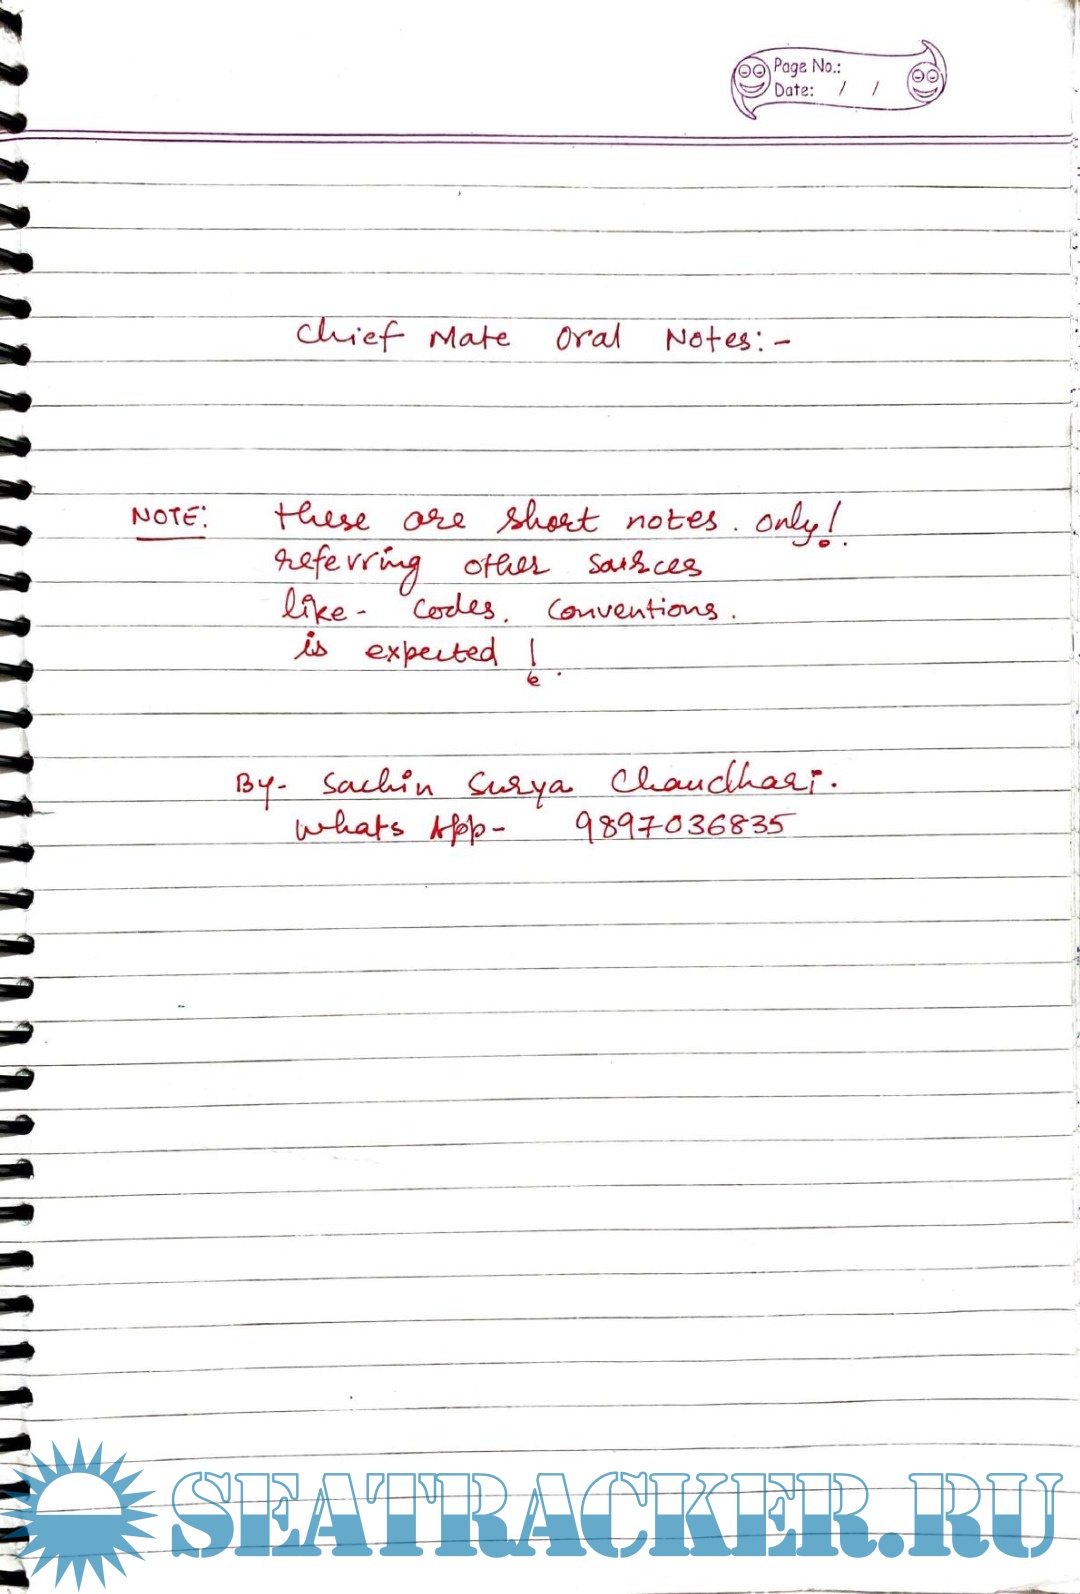 Page No.:
Date: / /
Chief Mate Oral Notes:-
NOTE: these are short notes. only!
referring other sources
like- codes. Conventions.
is expected !
By- Sachin Surya Chaudhari.
Whats App- 9897036835
SEATRACKER.RU